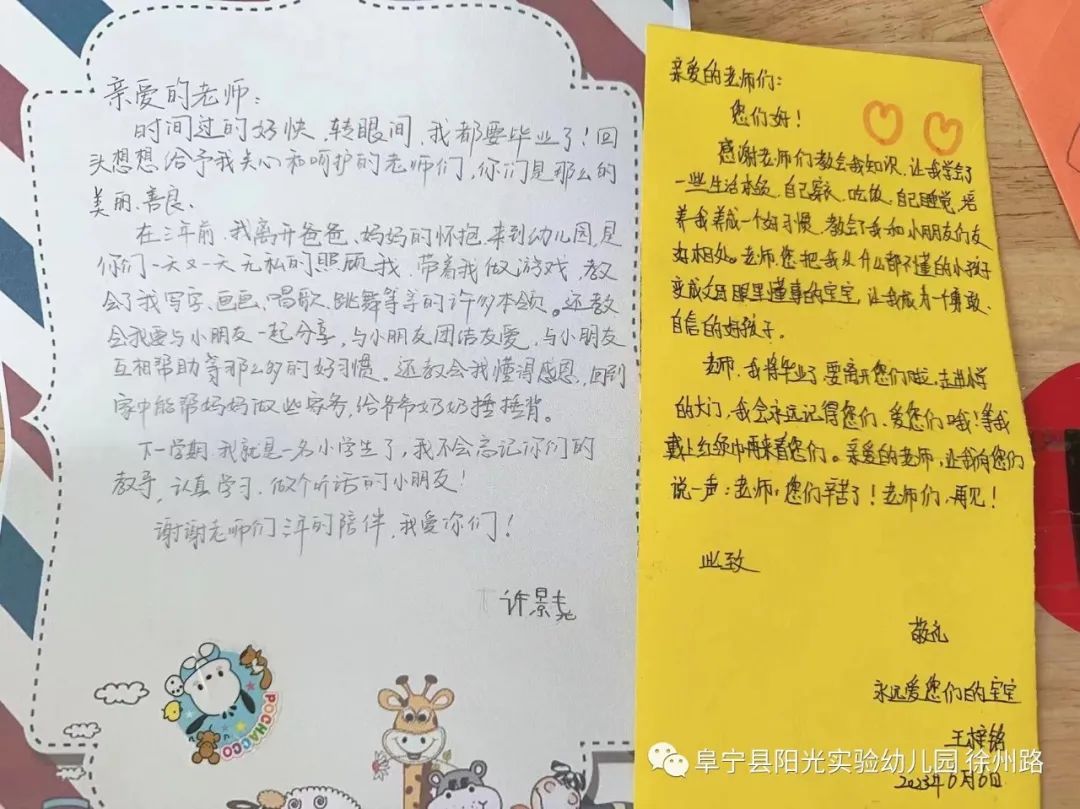 亲爱的老师：
时间过的好快，转眼间，我都要毕业了！回
头想想给予我关心和呵护的老师们，你们是那么的
美丽、善良。
在三年前，我离开爸爸、妈妈的怀抱，来到幼儿园，是
你们一天又一天无私的照顾我，带着我做游戏，教
会了我写字、画画、唱歌、跳舞等等的许多本领。还教
会我要与小朋友一起分享，与小朋友团结友爱，与小朋友
互相帮助等那么多的好习惯。还教会我懂得感恩，回到
家中能帮妈妈做些家务，给爷爷奶奶捶捶背。
下一学期，我就是一名小学生了，我不会忘记你们的
教导，认真学习，做个听话的小朋友！
谢谢老师们三年的陪伴，我爱你们！
许景尧
POCHACCO
亲爱的老师们：
您们好！
感谢老师们教会我知识，让我学会了
一些生活本领，自己穿衣、吃饭、自己睡觉，培
养我养成一个好习惯，教会了我和小朋友们友
好相处。老师，您把我从什么都不懂的小孩子
变成妈妈眼里懂事的宝宝，让我成为一个勇敢、
自信的好孩子。
老师，我将毕业了，要离开您们啦，走进小学
的大门，我会永远记得您们、爱您们哦！等我
戴上红领巾再来看您们。亲爱的老师，让我向您们
说一声：老师，您们辛苦了！老师们，再见！
此致
敬礼
永远爱您们的宝宝
王梓铭
2023年6月6日
阜宁县阳光实验幼儿园 徐州路